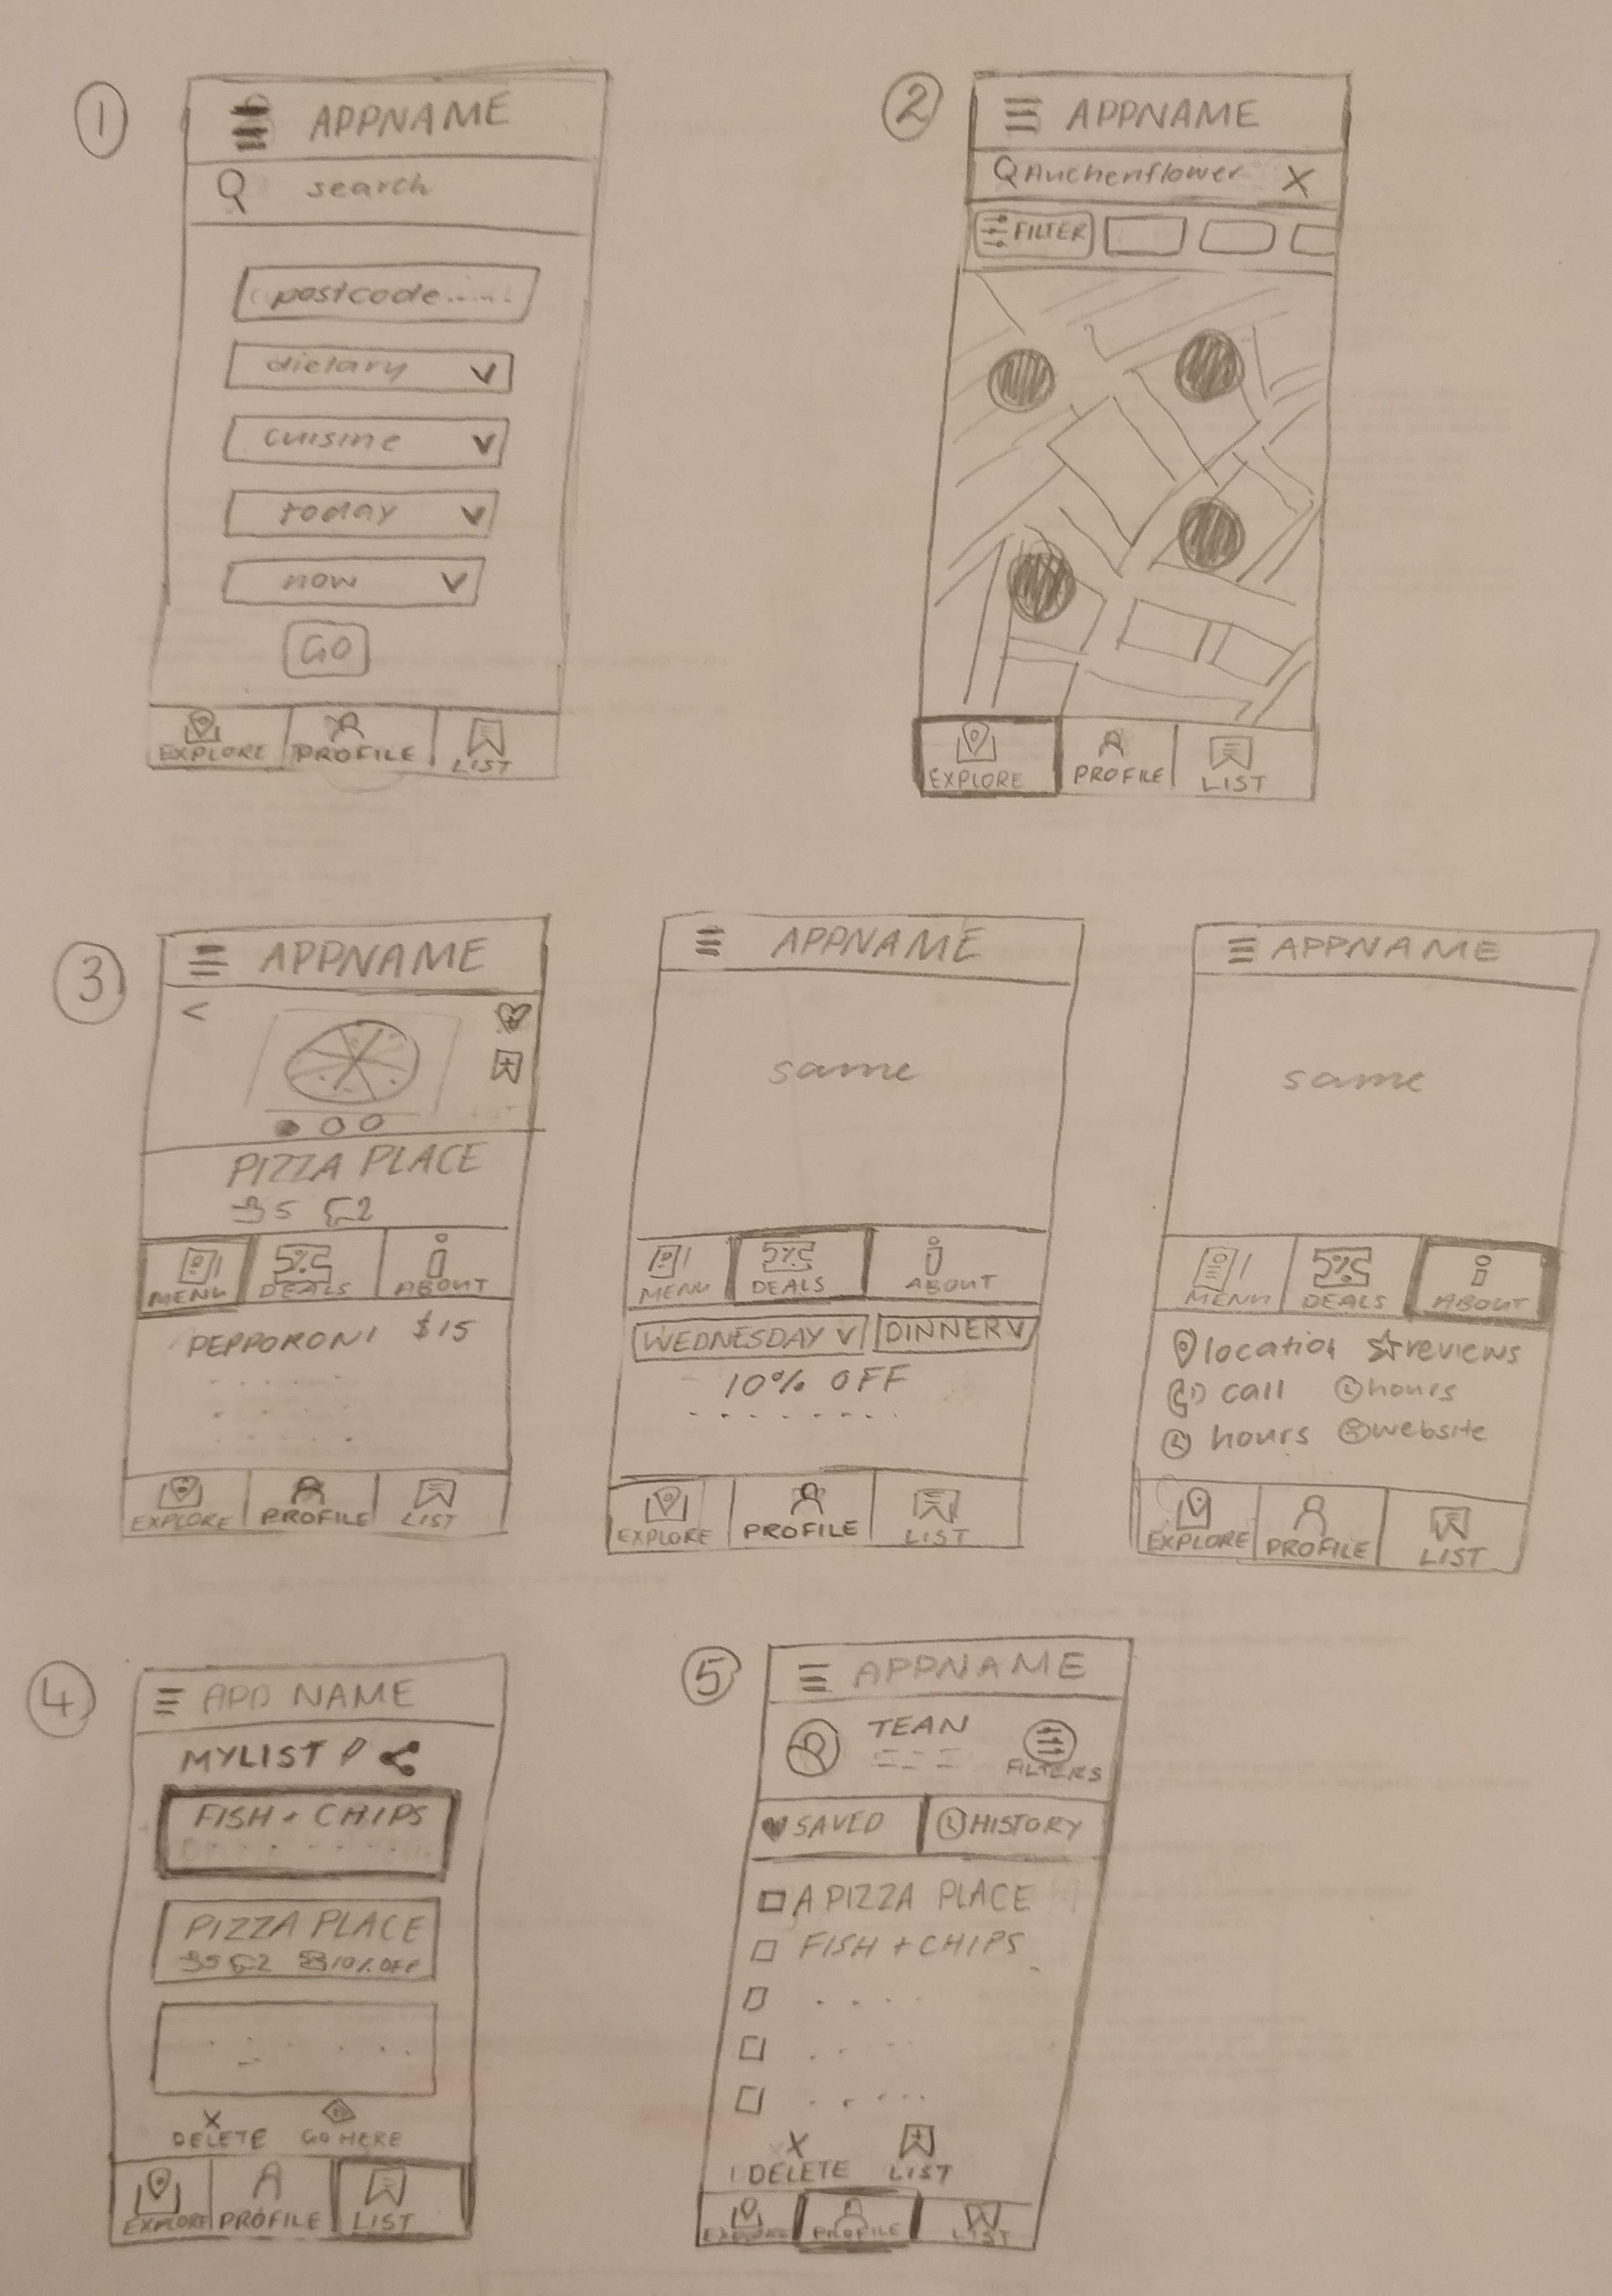 1
APPNAME
search
postcode.....
dietary
cuisine
today
now
GO
EXPLORE PROFILE LIST
2
APPNAME
Auchenflower X
FILTER
EXPLORE PROFILE LIST
3
APPNAME
<
PIZZA PLACE
5 2
MENU DEALS ABOUT
PEPPORONI $15
EXPLORE PROFILE LIST
APPNAME
same
MENU DEALS ABOUT
WEDNESDAY DINNER
10% OFF
EXPLORE PROFILE LIST
APPNAME
same
MENU DEALS ABOUT
location reviews
call hours
hours website
EXPLORE PROFILE LIST
4
APP NAME
MYLIST
FISH + CHIPS
PIZZA PLACE
5 2 10% OFF
X
DELETE GO HERE
EXPLORE PROFILE LIST
5
APPNAME
TEAN
FILTERS
SAVED HISTORY
A PIZZA PLACE
FISH + CHIPS
X
DELETE LIST
EXPLORE PROFILE LIST